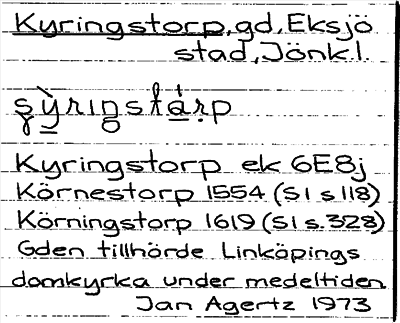 Kyringstorp, gd, Eksjö
stad, Jönk l.
Kyringstorp ek 6E8j
Körnestorp 1554 (S1 s 118)
Körningstorp 1619 (S1 s. 328)
Gden tillhörde Linköpings
domkyrka under medeltiden
Jan Agertz 1973